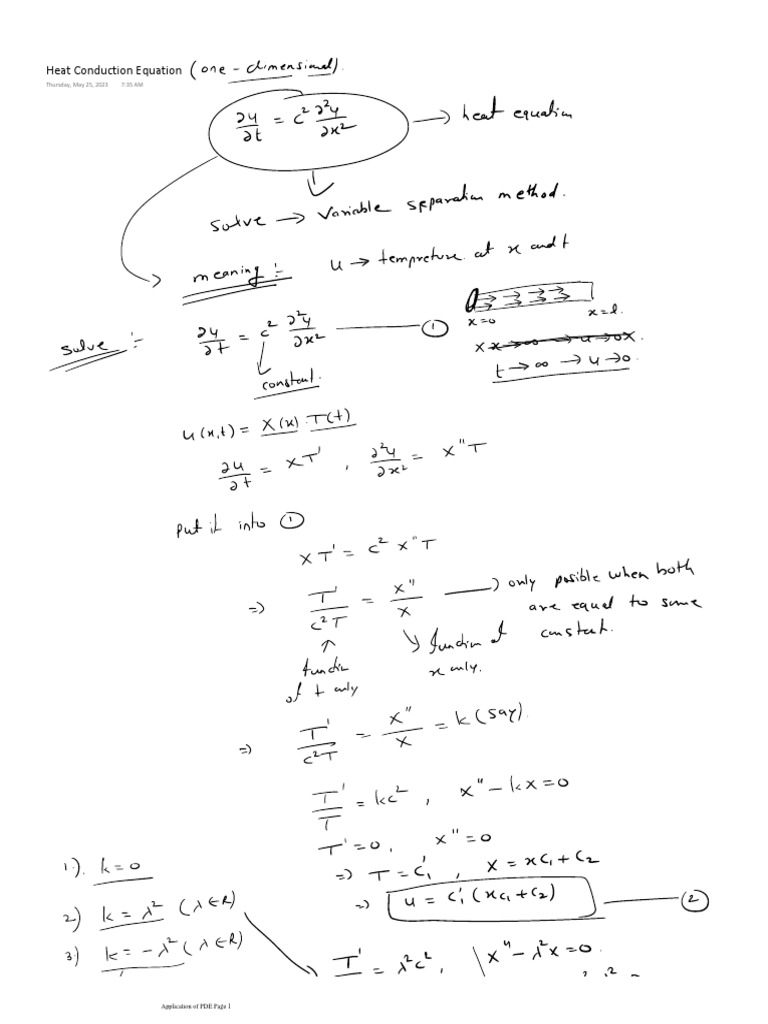 Heat Conduction Equation (one - dimensional).
Thursday, May 25, 2023 7:35 AM
∂u/∂t = c² ∂²u/∂x² → heat equation
solve → Variable separation method.
meaning :- u → tempreture at x and t
x=0 x=l.
solve :- ∂u/∂t = c² ∂²u/∂x² ①
constant.
t → ∞ → u → 0
u(x,t) = X(x) T(t)
∂u/∂t = XT' , ∂²u/∂x² = X"T
put it into ①
XT' = c² X"T
=> T'/c²T = X"/X → only posible when both
are equal to some
constant.
↑ function of t only
↘ function of x only.
=> T'/c²T = X"/X = k (say).
T'/T = kc² , X" - kX = 0
1). k = 0
T' = 0 , X" = 0
=> T = c₁' , X = xc₁ + c₂
2) k = λ² (λ ∈ R)
=> u = c₁' (xc₁ + c₂) ②
3.) k = - λ² (λ ∈ R)
T' = λ²c² , X" - λ²X = 0
Application of PDE Page 1